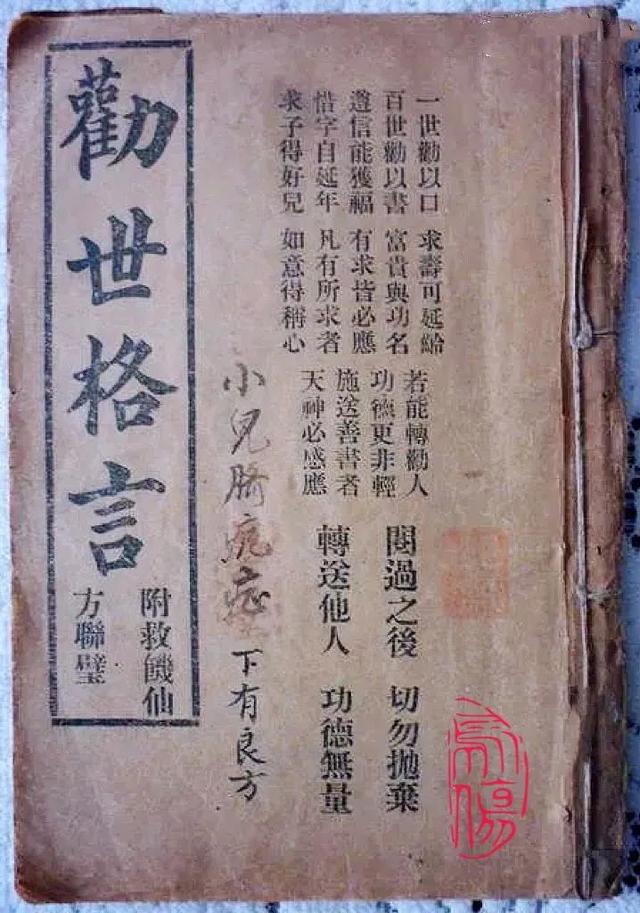 一世勸以口
百世勸以書
遵信能獲福
惜字自延年
求子得好兒
求壽可延紿
富貴與功名
有求皆必應
凡有所求者
如意得稱心
若能轉勸人
功德更非輕
施送善書者
天神必感應
閱過之後 切勿拋棄
轉送他人 功德無量
小兒臍症下有良方
勸世格言
附救饑仙
方聯璧